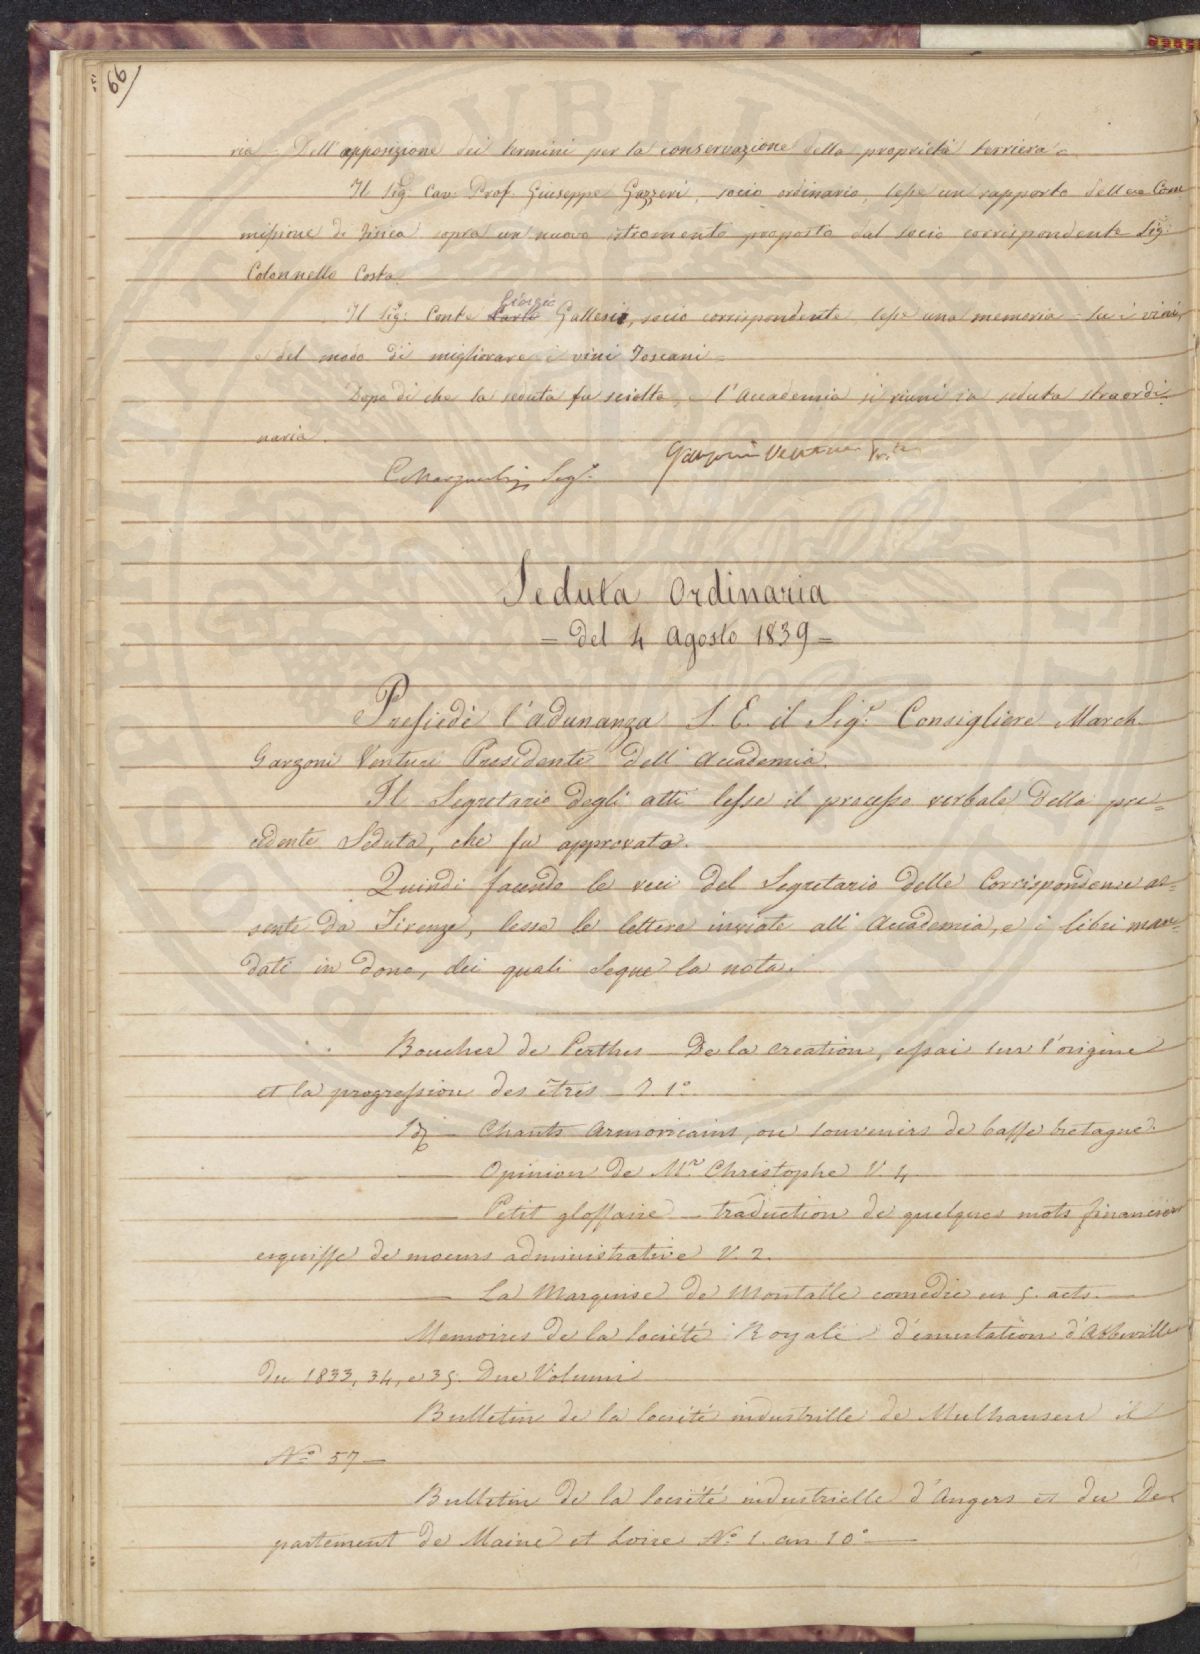 66
ria = Dell'apposizione dei termini per la conservazione della proprietà terriera =
Il Sig. Cav. Prof. Giuseppe Gazzeri, socio ordinario, lesse un rapporto della Com
missione di fisica sopra un nuovo istromento proposto dal socio corrispondente Sig.
Colonnello Costa.
Il Sig. Conte Carlo Giorgio Gallesio, socio corrispondente lesse una memoria = su i vini,
e del modo di migliorare i vini Toscani =
Dopo di che la seduta fu sciolta, e l'Accademia si riunì in seduta straordi
naria.
Garzoni Venturi
Seg.
Seduta Ordinaria
= del 4 Agosto 1839 =
Presiedè l'adunanza S. E. il Sig. Consigliere March.
Garzoni Venturi Presidente dell'Accademia.
Il Segretario degli atti lesse il processo verbale della pre=
cedente Seduta, che fu approvato.
Quindi facendo le veci del Segretario delle Corrispondenze as=
sente da Firenze, lesse le lettere inviate all'Accademia, e i libri man=
dati in dono, dei quali segue la nota.
Boucher de Perthes De la creation, essai sur l'origine
et la progression des êtres T. 1.°
Id. Chants Armoricains, ou souvenirs de basse bretagne.
Opinion de Mr. Christophe V. 4
Petit glossaire traduction de quelques mots financiers
esquisse de moeurs administrative V. 2.
La Marquise de Montalle comedie en 5. acts.
Memoires de la Société Royale d'emulation d'Abbeville
du 1833, 34, e 35. Due Volumi
Bulletin de la Société industrille de Mulhausen il
N.° 57
Bulletin de la Société industrielle d'Angers et du De
partement de Maine et Loire N.° 1. an. 10.°